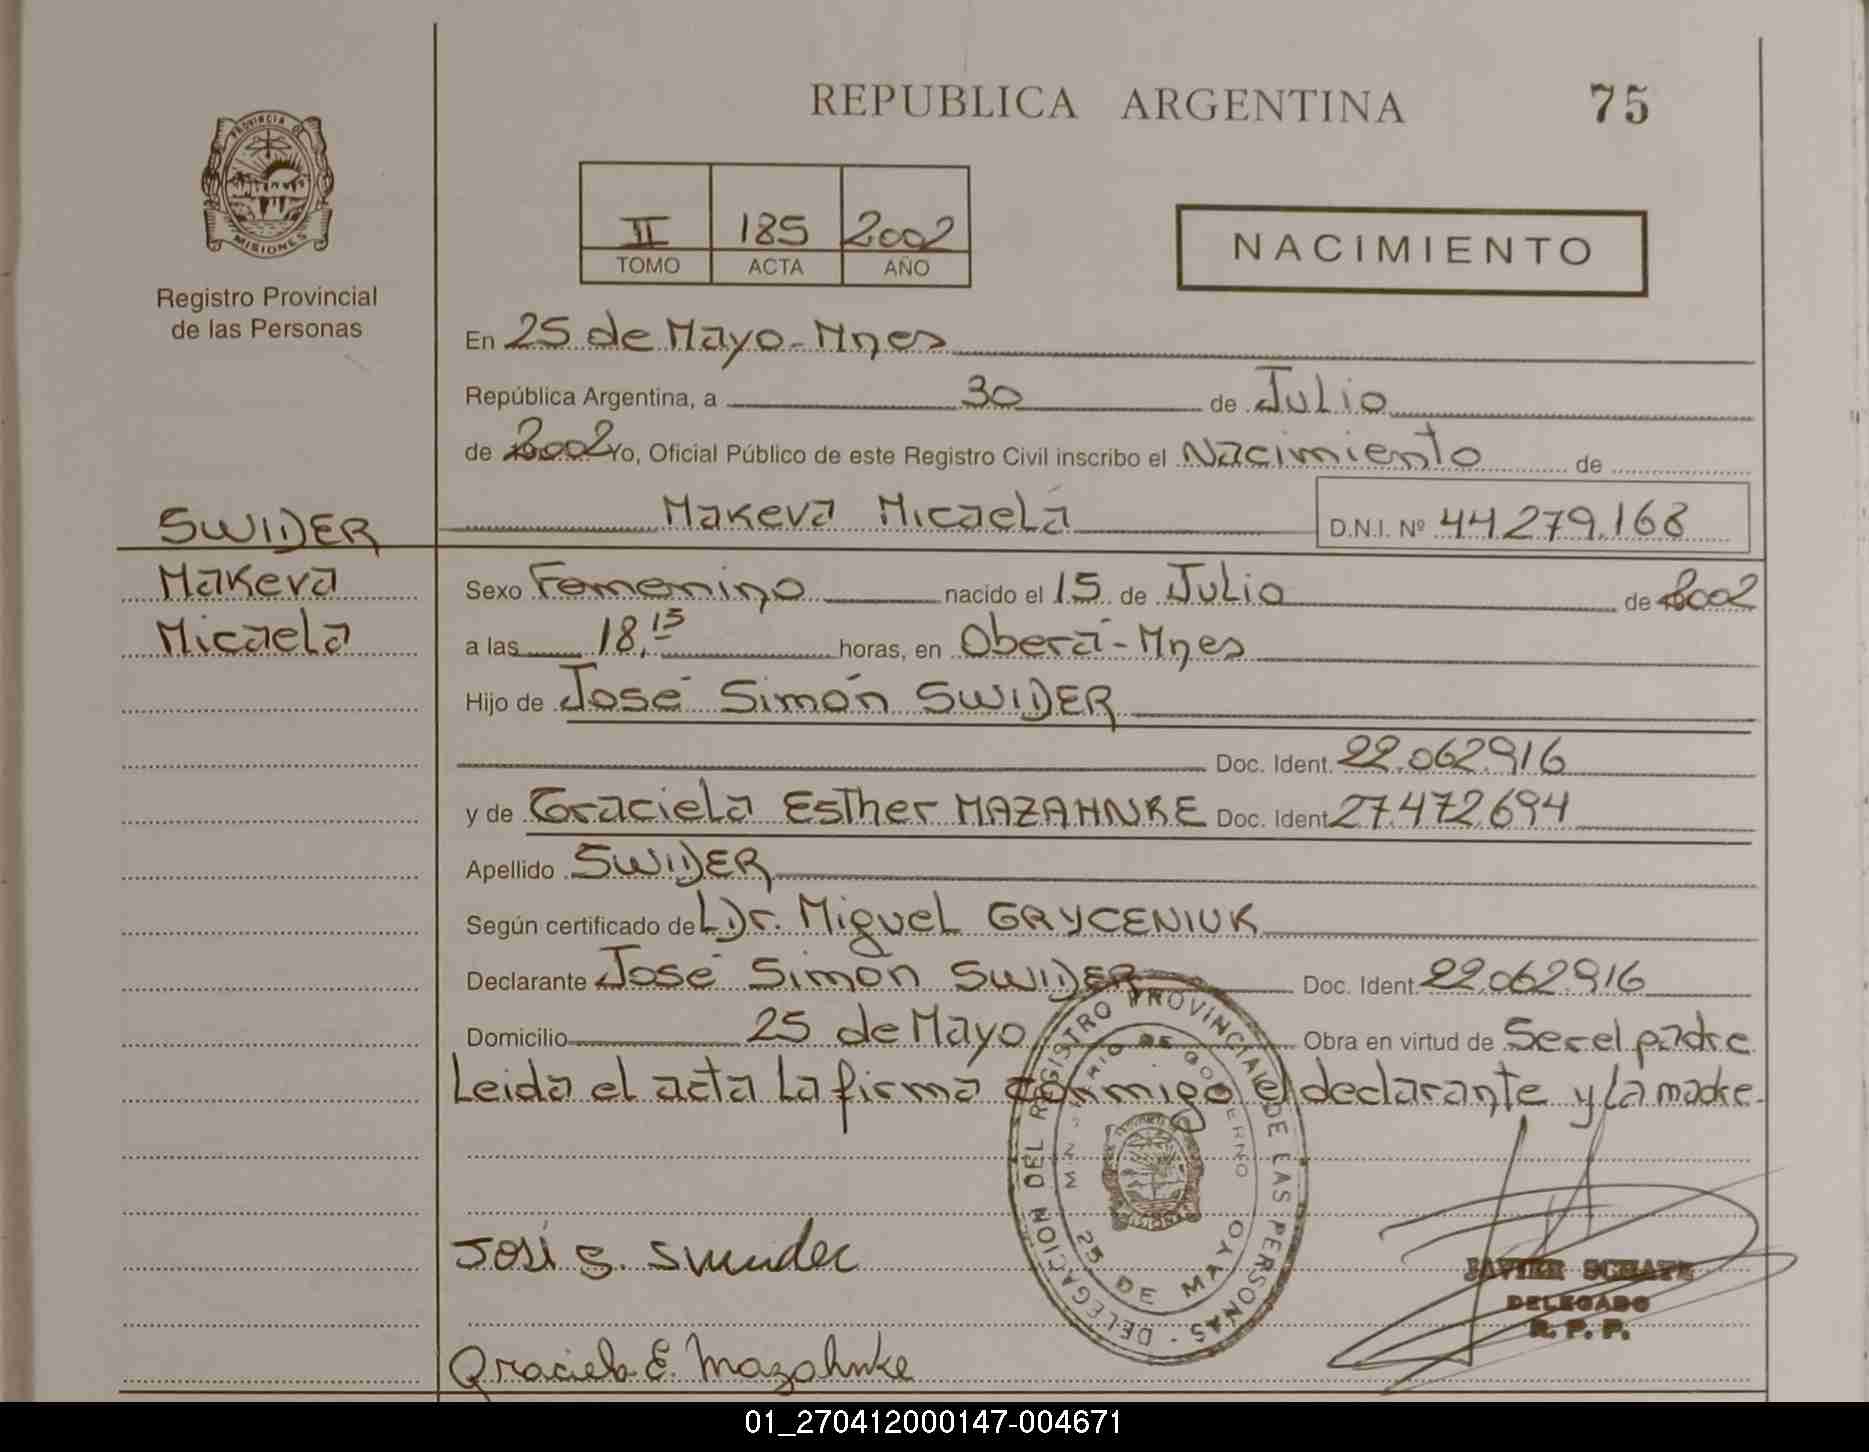 REPUBLICA ARGENTINA
75
PROVINCIA DE
MISIONES
Registro Provincial
de las Personas
II 185 2002
TOMO ACTA AÑO
NACIMIENTO
En 25 de Mayo - Mnes
República Argentina, a 30 de Julio
de 2002 Yo, Oficial Público de este Registro Civil inscribo el Nacimiento de
Makeva Micaela D.N.I. Nº 44.279.168
SWIDER
Makeva
Micaela
Sexo Femenino nacido el 15 de Julio de 2002
a las 18,15 horas, en Oberá - Mnes
Hijo de José Simón SWIDER
Doc. Ident. 22.062.916
y de Graciela Esther MAZAHNKE Doc. Ident 27.472.694
Apellido SWIDER
Según certificado de Dr. Miguel GRYCENIUK
Declarante José Simón SWIDER Doc. Ident. 22.062.916
Domicilio 25 de Mayo Obra en virtud de Ser el padre
Leida el acta La firma conmigo el declarante y La madre.
DELEGACION DEL REGISTRO PROVINCIAL DE LAS PERSONAS -
MINISTERIO DE GOBIERNO
25 DE MAYO
José S. Swider
JAVIER
DELEGADO
R. P. P.
Graciela E. Mazahnke
01_270412000147-004671